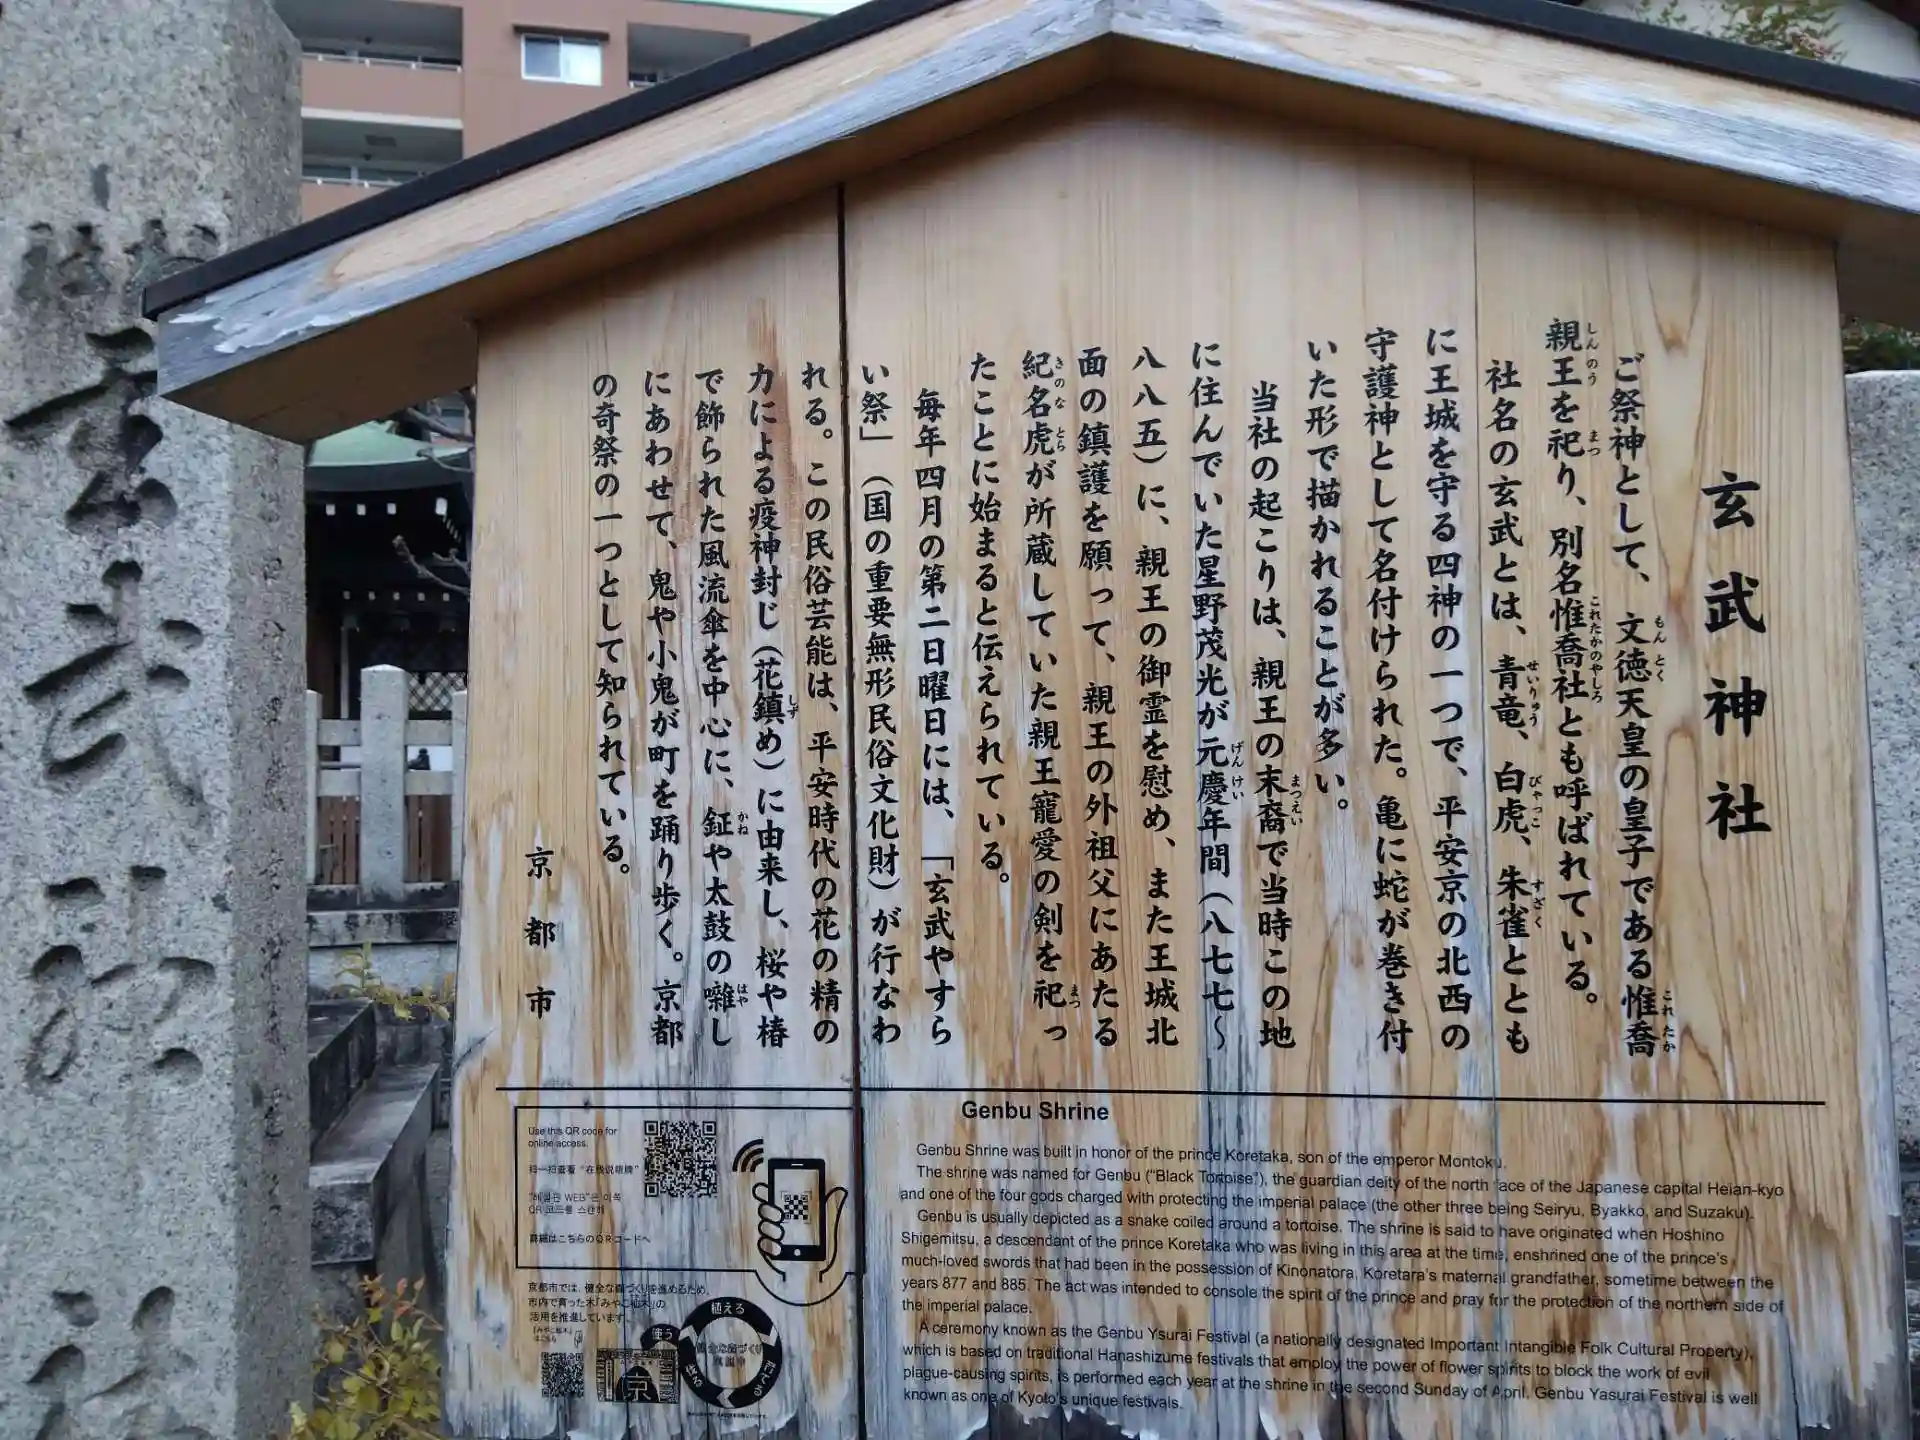 玄武神社
ご祭神として、文徳天皇の皇子である惟喬
親王を祀り、別名惟喬社とも呼ばれている。
社名の玄武とは、青竜、白虎、朱雀ととも
に王城を守る四神の一つで、平安京の北西の
守護神として名付けられた。亀に蛇が巻き付
いた形で描かれることが多い。
当社の起こりは、親王の末裔で当時この地
に住んでいた星野茂光が元慶年間（八七七～
八八五）に、親王の御霊を慰め、また王城北
面の鎮護を願って、親王の外祖父にあたる
紀名虎が所蔵していた親王寵愛の剣を祀っ
たことに始まると伝えられている。
毎年四月の第二日曜日には、「玄武やすら
い祭」（国の重要無形民俗文化財）が行なわ
れる。この民俗芸能は、平安時代の花の精の
力による疫神封じ（花鎮め）に由来し、桜や椿
で飾られた風流傘を中心に、鉦や太鼓の囃し
にあわせて、鬼や小鬼が町を踊り歩く。京都
の奇祭の一つとして知られている。
京都市
Genbu Shrine
Genbu Shrine was built in honor of the prince Koretaka, son of the emperor Montoku.
The shrine was named for Genbu ("Black Tortoise"), the guardian deity of the north face of the Japanese capital Heian-kyo
and one of the four gods charged with protecting the imperial palace (the other three being Seiryu, Byakko, and Suzaku).
Genbu is usually depicted as a snake coiled around a tortoise. The shrine is said to have originated when Hoshino
Shigemitsu, a descendant of the prince Koretaka who was living in this area at the time, enshrined one of the prince's
much-loved swords that had been in the possession of Kinonatora, Koretara's maternal grandfather, sometime between the
years 877 and 885. The act was intended to console the spirit of the prince and pray for the protection of the northern side of
the imperial palace.
A ceremony known as the Genbu Ysurai Festival (a nationally designated Important Intangible Folk Cultural Property),
which is based on traditional Hanashizume festivals that employ the power of flower spirits to block the work of evil
plague-causing spirits, is performed each year at the shrine in the second Sunday of April. Genbu Yasurai Festival is well
known as one of Kyoto's unique festivals.
Use this QR code for
online access.
扫一扫查看"在线说明牌"
"해설판 WEB"은 이쪽
QR 코드를 스캔해
詳細はこちらのQRコードへ
京都市では、健全な森づくりを進めるため、
市内で育った木「みやこ杣木」の
活用を推進しています。
「みやこ杣木」
はこちら
植える
育てる
使う
京
玄武神社